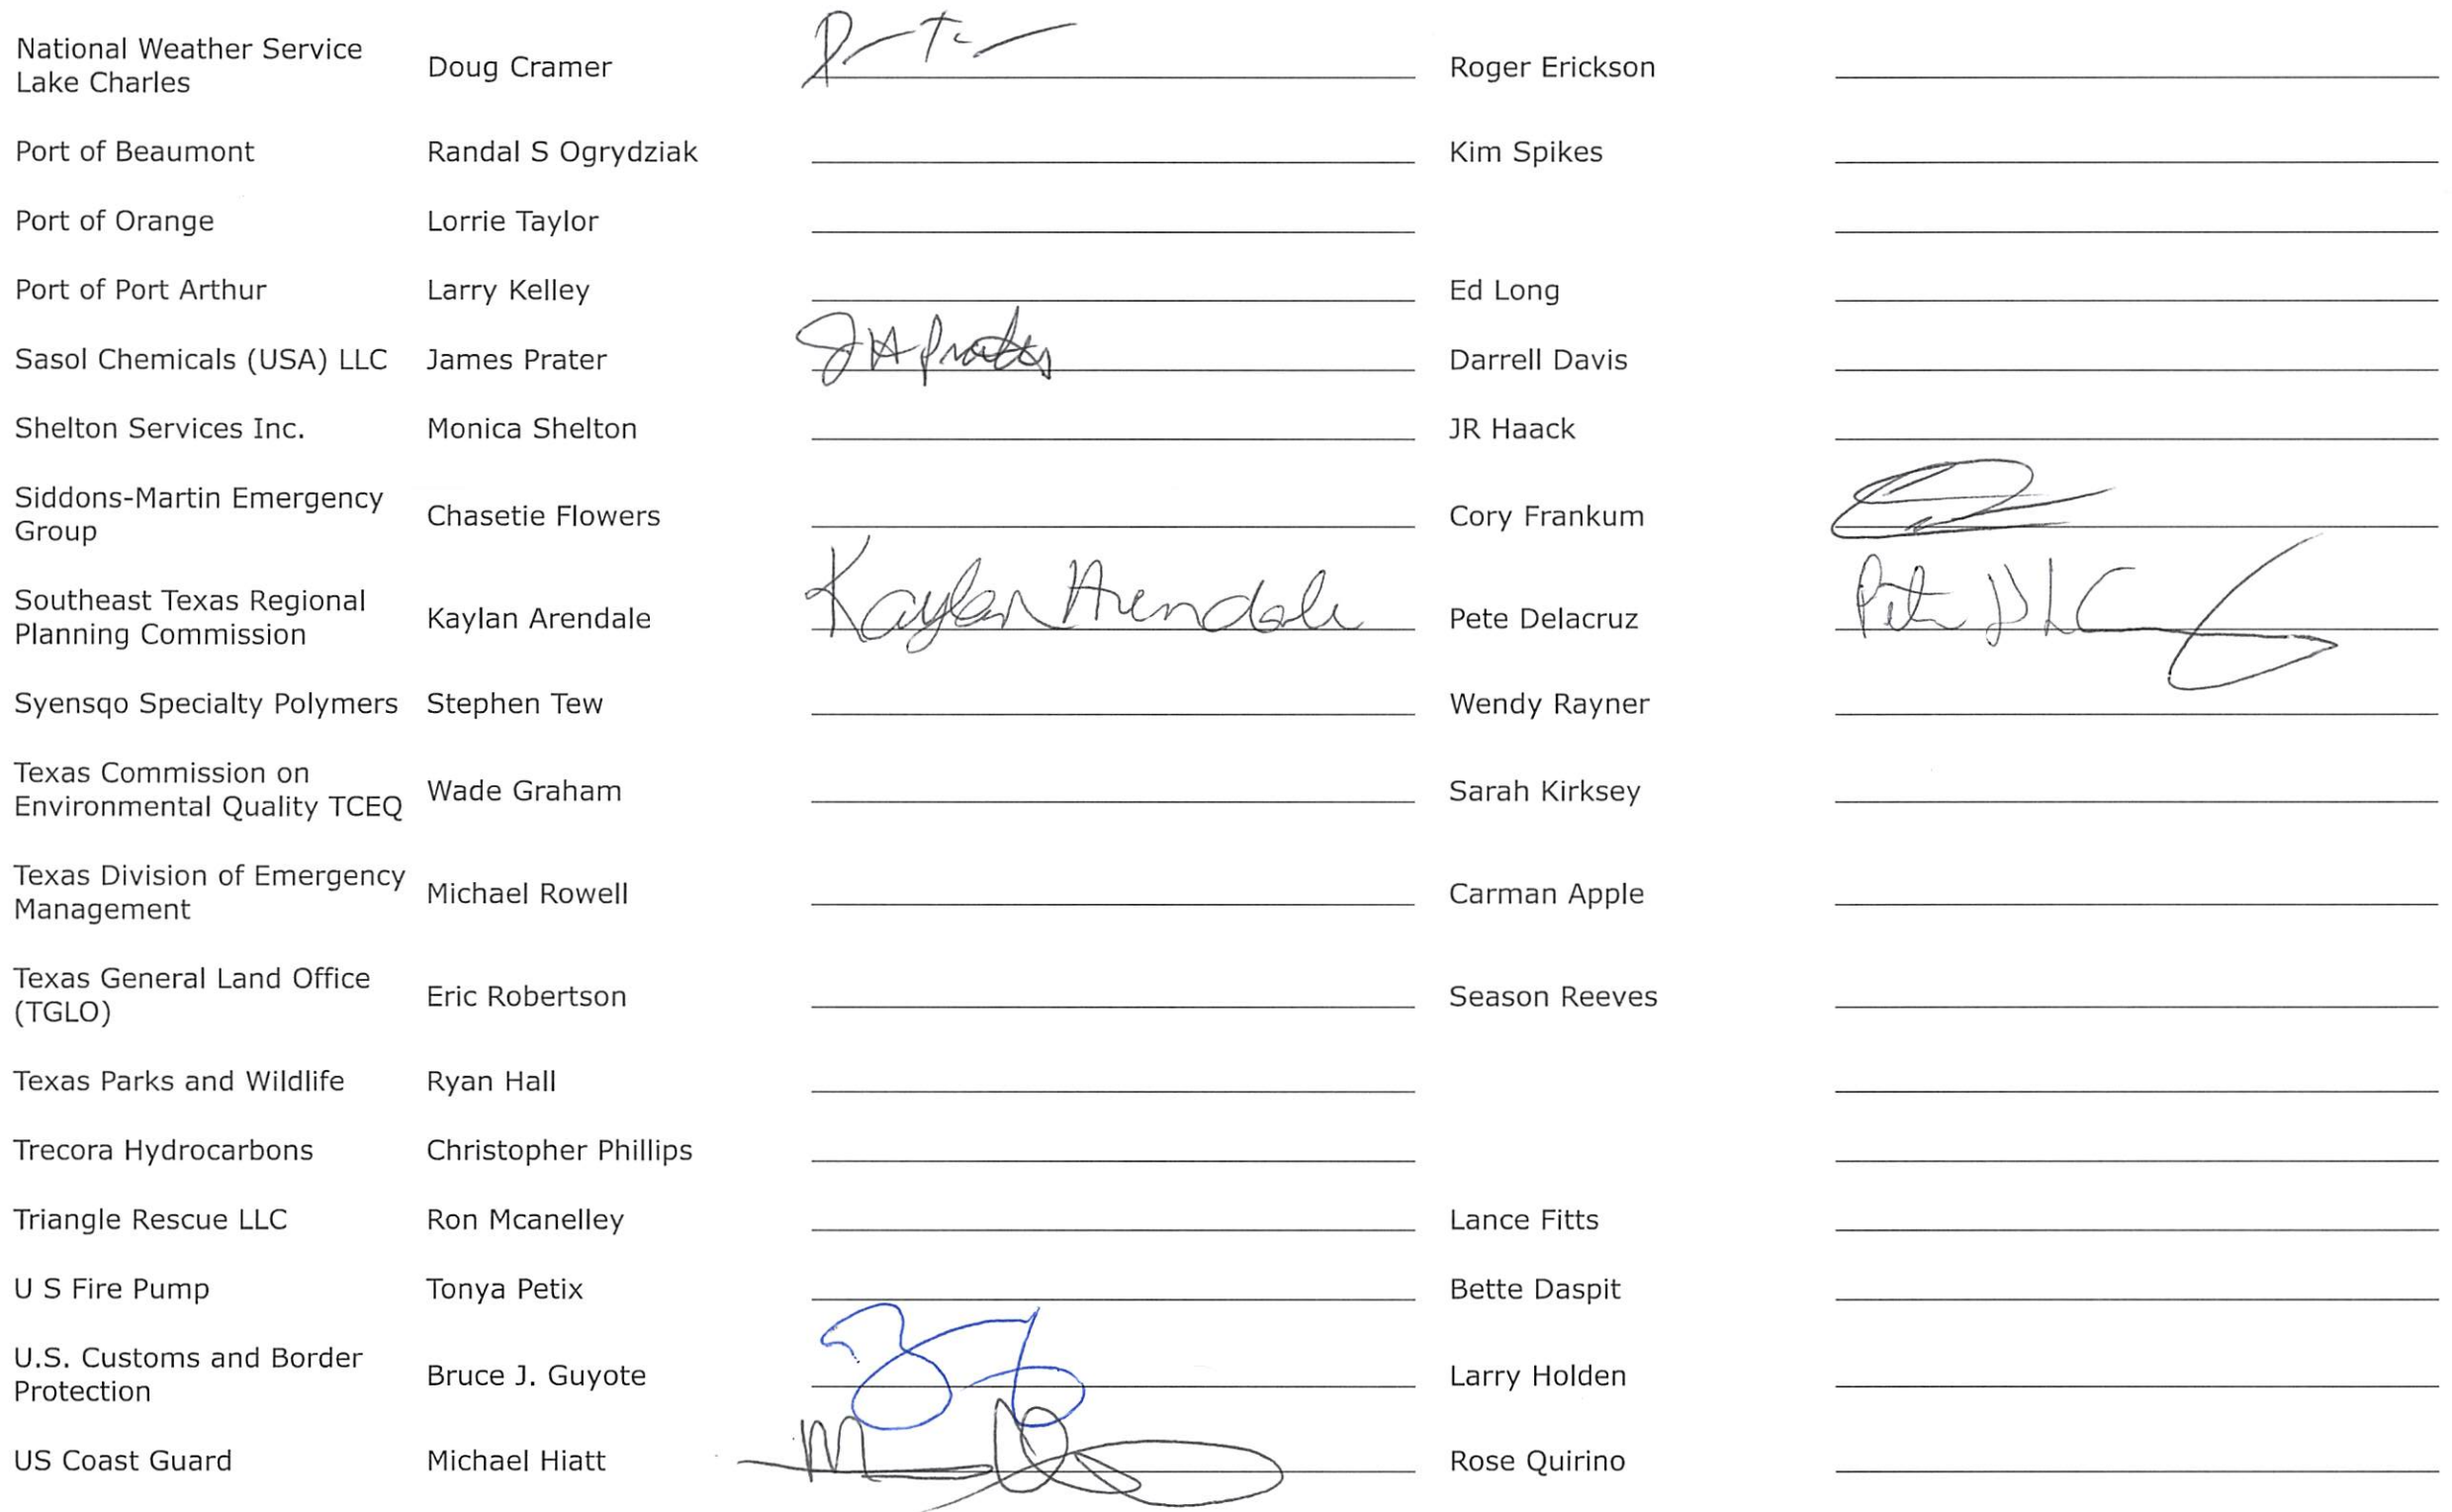 National Weather Service
Lake Charles
Doug Cramer
Roger Erickson
Port of Beaumont
Randal S Ogrydziak
Kim Spikes
Port of Orange
Lorrie Taylor
Port of Port Arthur
Larry Kelley
Ed Long
Sasol Chemicals (USA) LLC
James Prater
JHPrater
Darrell Davis
Shelton Services Inc.
Monica Shelton
JR Haack
Siddons-Martin Emergency
Group
Chasetie Flowers
Cory Frankum
Southeast Texas Regional
Planning Commission
Kaylan Arendale
Kaylan Arendale
Pete Delacruz
Syensqo Specialty Polymers
Stephen Tew
Wendy Rayner
Texas Commission on
Environmental Quality TCEQ
Wade Graham
Sarah Kirksey
Texas Division of Emergency
Management
Michael Rowell
Carman Apple
Texas General Land Office
(TGLO)
Eric Robertson
Season Reeves
Texas Parks and Wildlife
Ryan Hall
Trecora Hydrocarbons
Christopher Phillips
Triangle Rescue LLC
Ron Mcanelley
Lance Fitts
U S Fire Pump
Tonya Petix
Bette Daspit
U.S. Customs and Border
Protection
Bruce J. Guyote
Larry Holden
US Coast Guard
Michael Hiatt
Rose Quirino